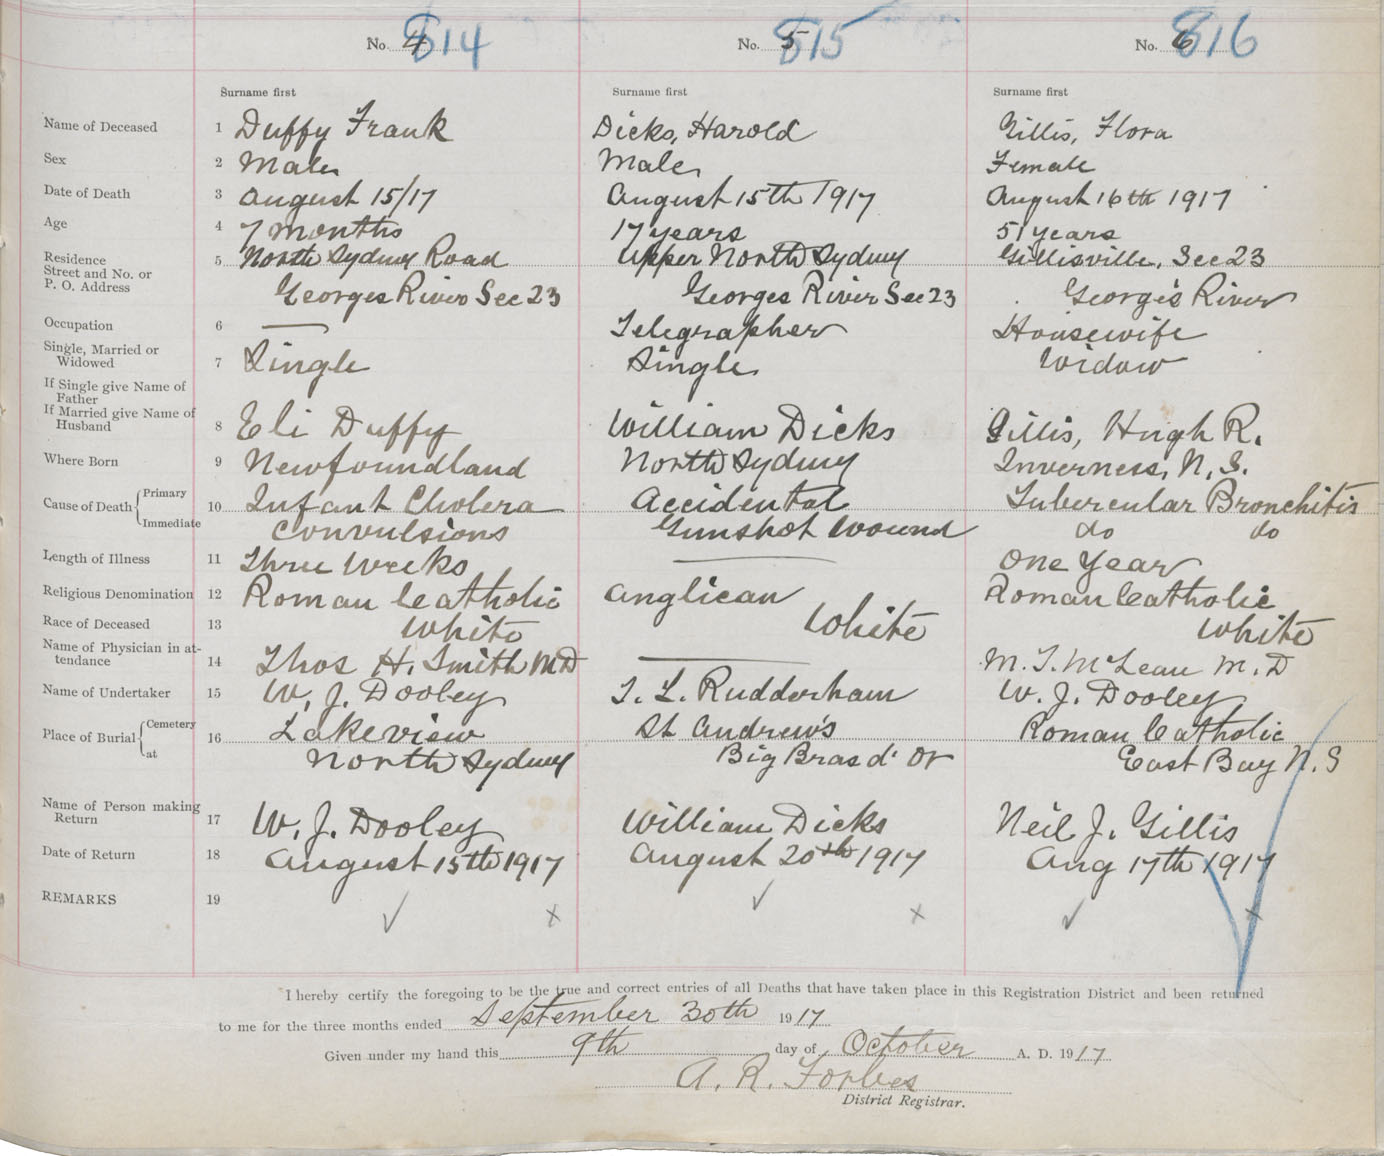 No. 4 814 No. 5 815 No. 6 816
Surname first Surname first Surname first
Name of Deceased 1 Duffy Frank Dicks, Harold Gillis, Flora
Sex 2 Male Male Female
Date of Death 3 August 15/17 August 15th 1917 August 16th 1917
Age 4 7 months 17 years 51 years
Residence 5 North Sydney Road Upper North Sydney Gillisville, Sec 23
Street and No. or
P. O. Address Georges River Sec 23 Georges River Sec 23 George's River
Occupation 6 — Telegrapher Housewife
Single, Married or
Widowed 7 Single Single Widow
If Single give Name of
Father
If Married give Name of
Husband 8 Eli Duffy William Dicks Gillis, Hugh R.
Where Born 9 Newfoundland North Sydney Inverness, N. S.
Cause of Death { Primary 10 Infant Cholera Accidental Tubercular Bronchitis
Immediate Convulsions Gunshot Wound do do
Length of Illness 11 Three Weeks — One Year
Religious Denomination 12 Roman Catholic Anglican Roman Catholic
Race of Deceased 13 White White White
Name of Physician in at-
tendance 14 Thos H. Smith M D — M. T. McLean M. D
Name of Undertaker 15 W. J. Dooley T. L. Rudderham W. J. Dooley
Place of Burial { Cemetery 16 Lakeview St Andrew's Roman Catholic
at North Sydney Big Bras d' Or East Bay N. S
Name of Person making
Return 17 W. J. Dooley William Dicks Neil J. Gillis
Date of Return 18 August 15th 1917 August 20th 1917 Aug 17th 1917
REMARKS 19 ✓ x ✓ x ✓ x
I hereby certify the foregoing to be the true and correct entries of all Deaths that have taken place in this Registration District and been returned
to me for the three months ended September 30th 1917
Given under my hand this 9th day of October A. D. 1917
A. R. Forbes
District Registrar.